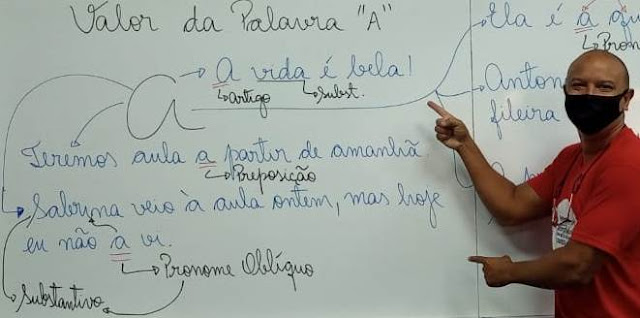 Valor da Palavra "A"
a
A vida é bela!
Artigo Subst.
Teremos aula a partir de amanhã
Preposição
Sabrina veio à aula ontem, mas hoje
eu não a vi.
Pronome Oblíquo
Substantivo
Ela é a
Pron
fileira